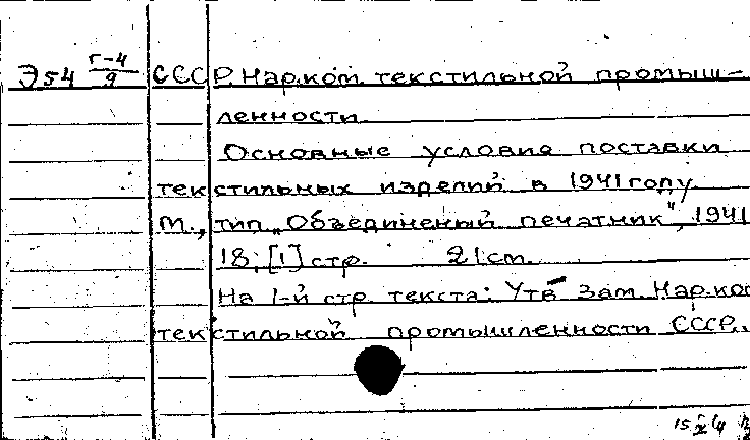 Э54 Г-4/9 СССР. Нар.ком. текстильной промыш-
ленности.
Основные условия поставки
текстильных изделий в 1941 году.
М., тип. „Объединеный печатник", 1941
18; [1] стр. 21 см.
На 1-й стр. текста: Утв. Зам. Нар.ко
текстильной промышленности СССР..